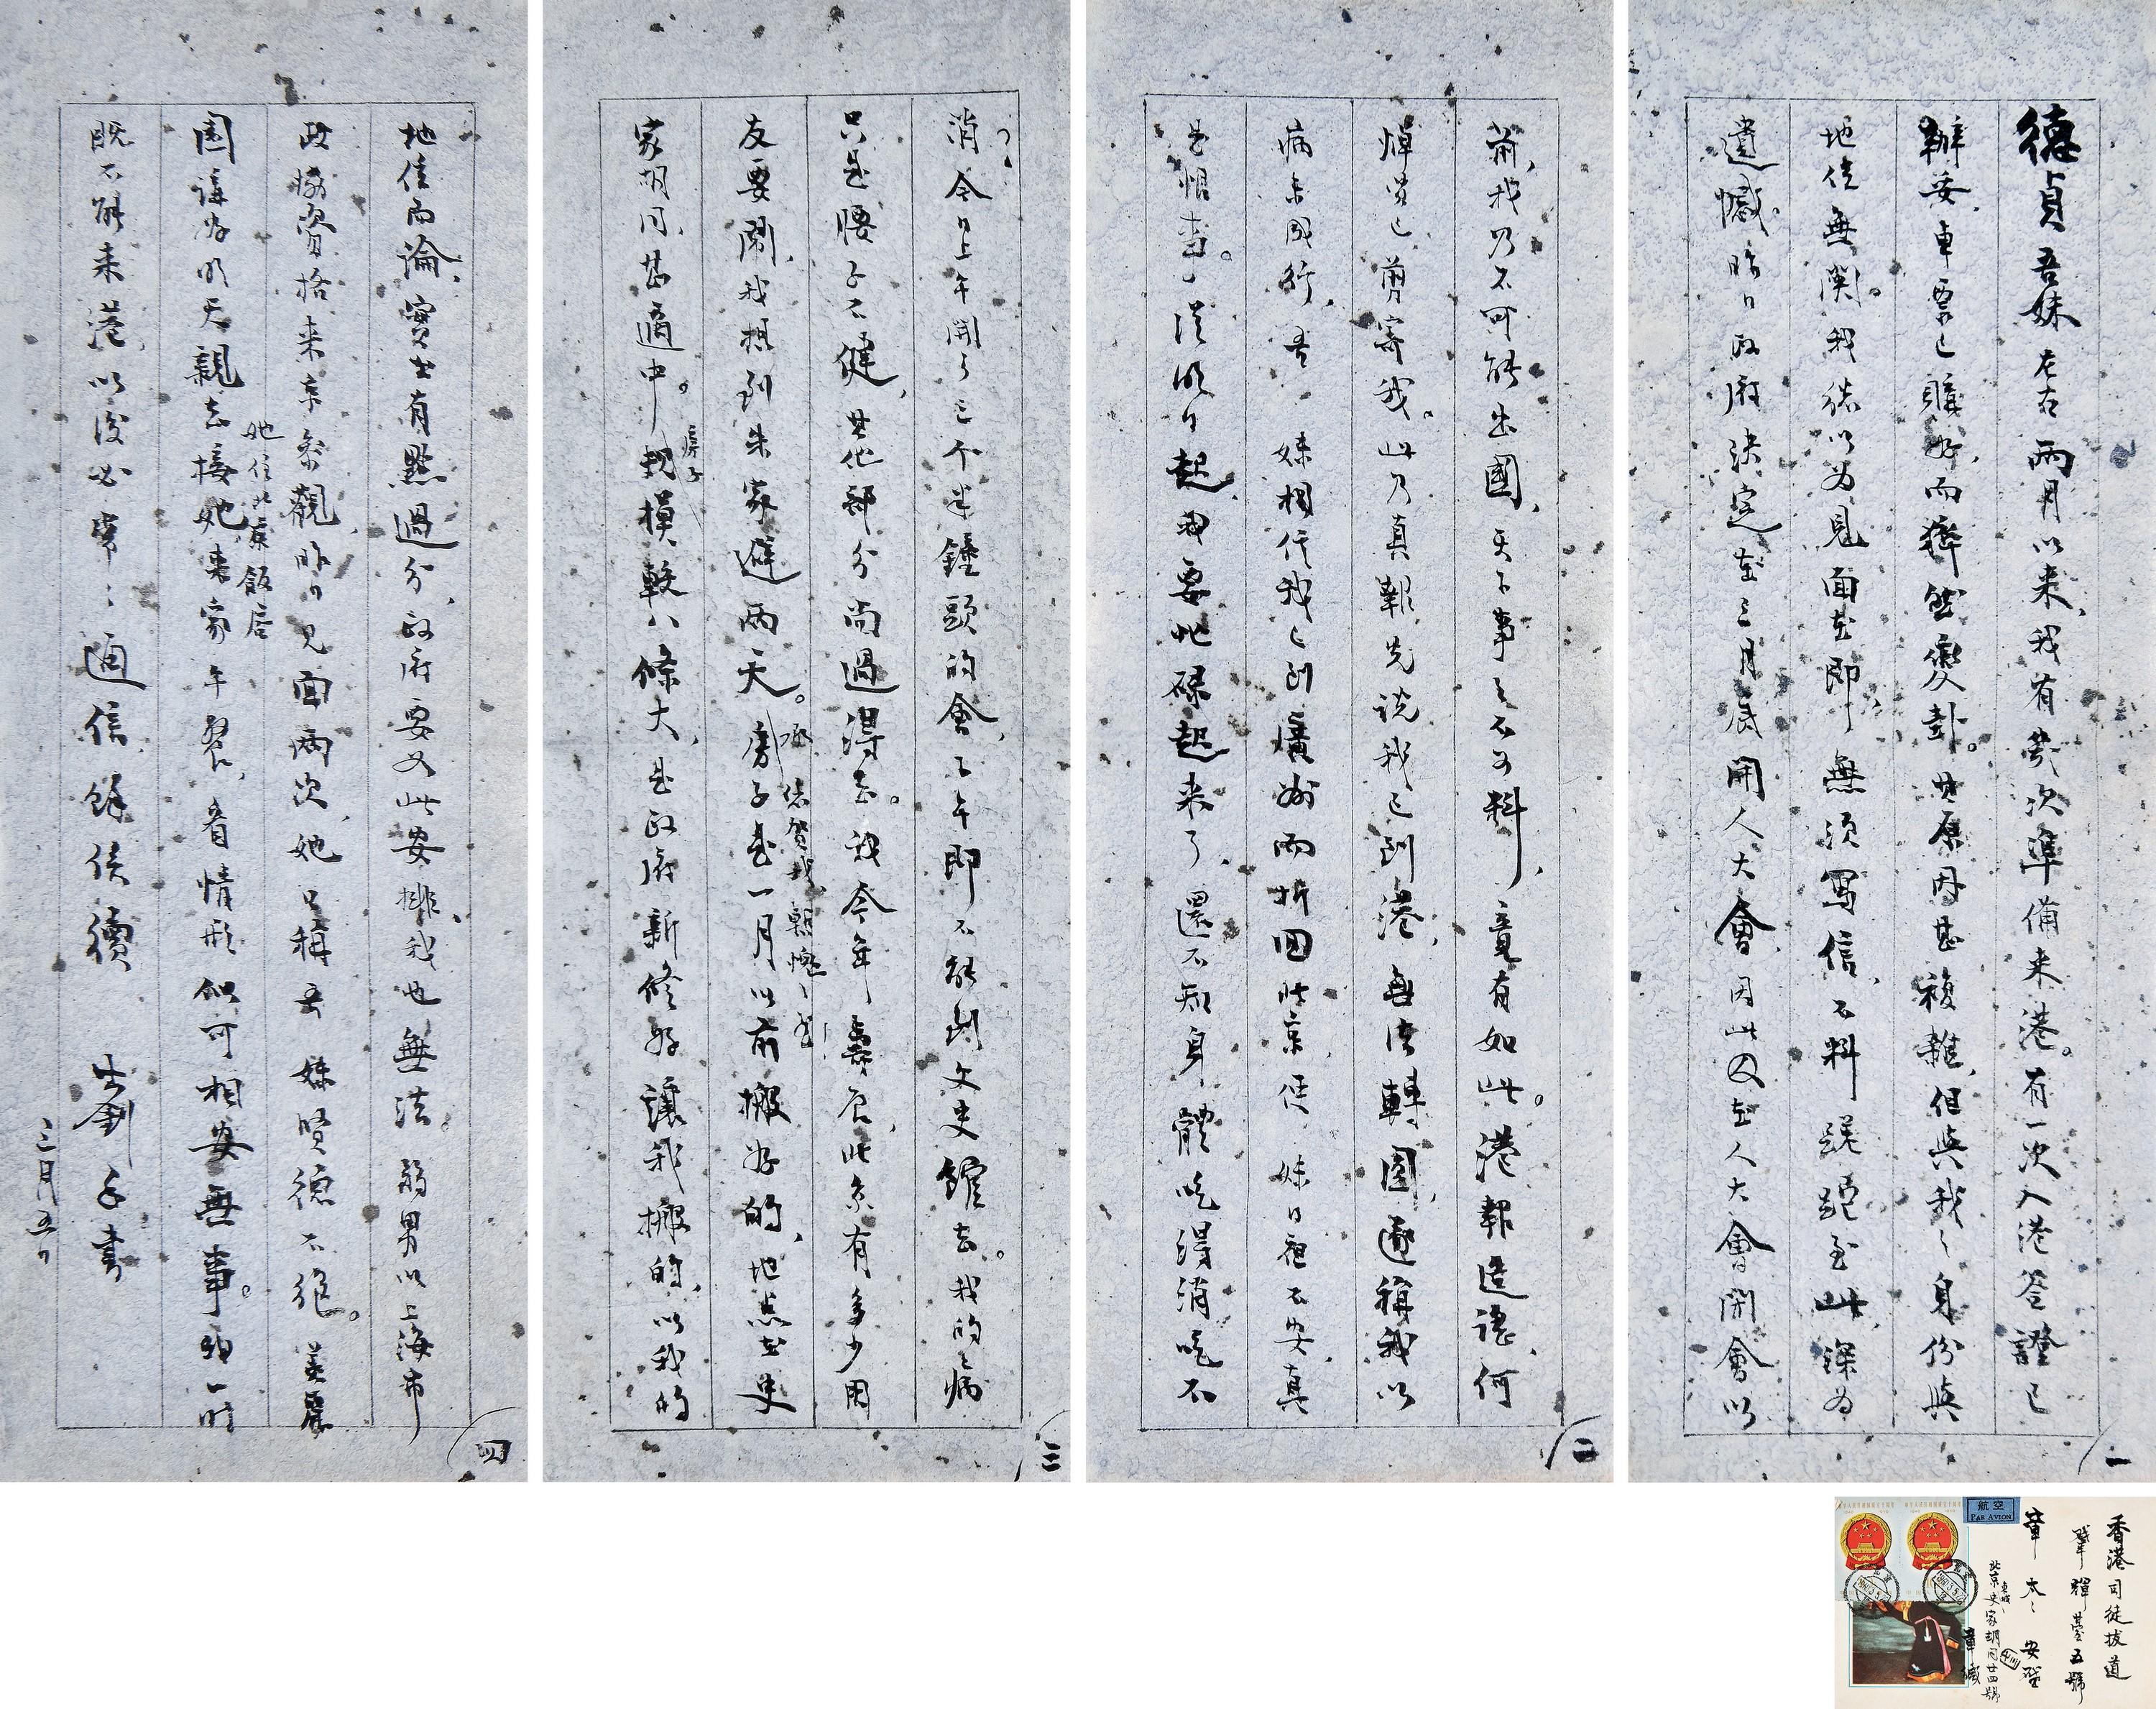 德貞吾妹左右兩月以來、我有幾次準備來港。有一次入港簽證已
辦妥、車票已購好、而猝然變卦。其原因甚複雜、但與我之身份與
地位無關。我總以為見面在即、無須寫信、不料蹉跎至此、深為
遺憾。昨日政府決定在三月底開人大會、因此又在人大會開會以
前、我乃不可能出國、天下事之不可料、竟有如此。港報造謠、何
焯賢已剪寄我。此乃真報先說我已到港、無法轉圜、遂稱我以
病未成行、吾 妹相信我已到廣州而折回北京、使 妹日夜不安、真
是恨事。從明日起、我要忙碌起來了、還不知身體吃得消吃不
消、今日上午開了三个半鐘頭的會、下午即不能到文史館去。我的病
只是腰子不健、其他部分尚過得去。我今年壽辰、此京有多少困
友要鬧、我想到朱家避兩天。房子是一月以前搬好的、地点在史
承 你賀我、慚愧慚愧
家胡同、甚適中。規模較八條大、是政府新修好讓我搬的、以我的
房子
地位而論、實在有點過分、政府要如此安排、我也無法。 弱男以上海市
政協資格來京參觀、昨日見面兩次、她只稱吾 妹賢德不絕。美麗
她住北京飯店
園請好明天親去接她來家午餐、看情形似可相安無事。
既不能來港、以後必常常通信、餘俟續 士釗手書
三月五日
一
二
三
四
香港司徒拔道
肇輝臺五號
章太太 安啓
北京東城史家胡同廿四號
章緘
航空
PAR AVION